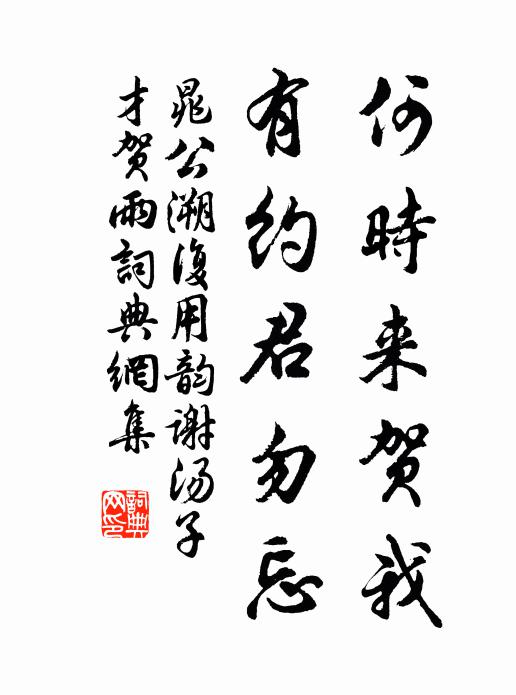 何時来賀我
有約君勿忘
晁公溯復用韵谢汤子
才贺雨詞典網集
詞典网印